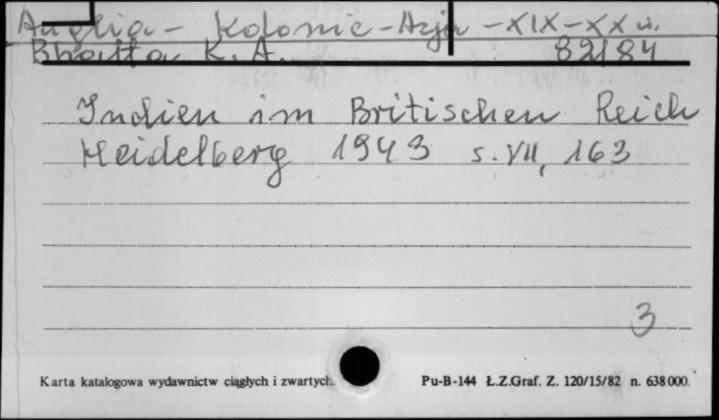 Anglia - Kolonie - Azja - XIX - XX w.
Bhatta K. A. 82184
Indien im Britischen Reich
Heidelberg 1943 s. VII, 163
3
Karta katalogowa wydawnictw ciągłych i zwartych. Pu-B-144 Ł.Z.Graf. Z. 120/15/82 n. 638000.